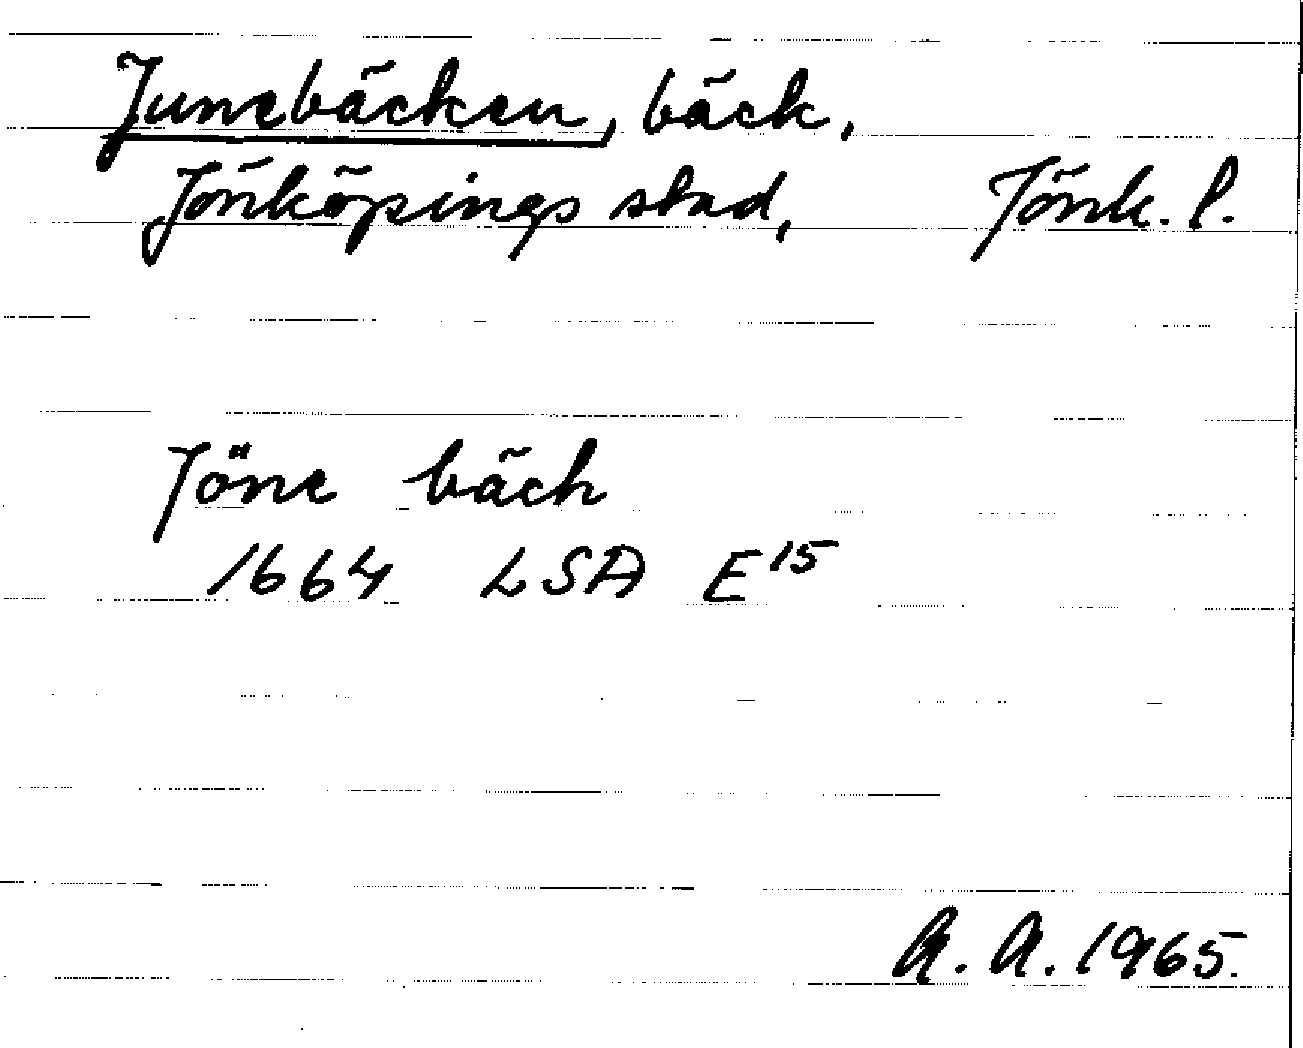 Junebäcken, bäck,
Jönköpings stad, Jönk. l.
Jöne bäch
1664 LSA E15
A. A. 1965.